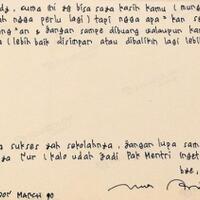 cuma ini yg bisa saya kasih kamu (mung
ah ngga perlu lagi) tapi ngga apa² kan se
ang²an & jangan sampe dibuang walaupun kam
(lebih baik disimpan atau dibalikin lagi lebih
sukses yah sekolahnya, jangan lupa sam
ya Tur (kalo udah jadi Pak Mentri inget
bye,
MARCH 90